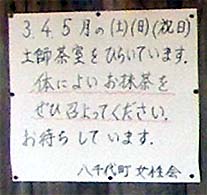 3.4.5月の(土)(日)(祝日)
土師茶室をひらいています.
体によいお抹茶を
ぜひ召よってください.
お待ちしています.
八千代町 女性会